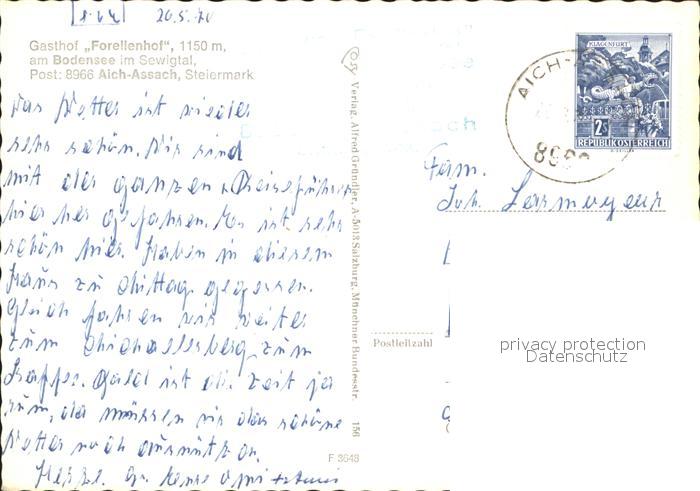 20.5.70
Gasthof „Forellenhof“, 1150 m,
am Bodensee im Sewigtal,
Post: 8966 Aich-Assach, Steiermark
Das Wetter ist wieder
sehr schön. Wir sind
mit der ganzen
hier her gefahren. Es ist sehr
schön hier. Haben in diesem
Haus zu Mittag gegessen.
Gleich fahren wir weiter
zum zum
Kaffee. Bald ist die Zeit ja
rum, da müssen wir das schöne
Wetter noch ausnützen.
Herzl. Gr.
Verlag Alfred Gründler, A-5013 Salzburg, Münchner Bundesstr. 156
F 3648
KLAGENFURT
2S
REPUBLIK ÖSTERREICH
AICH-
Fam.
Joh.
Postleitzahl
privacy protection
Datenschutz